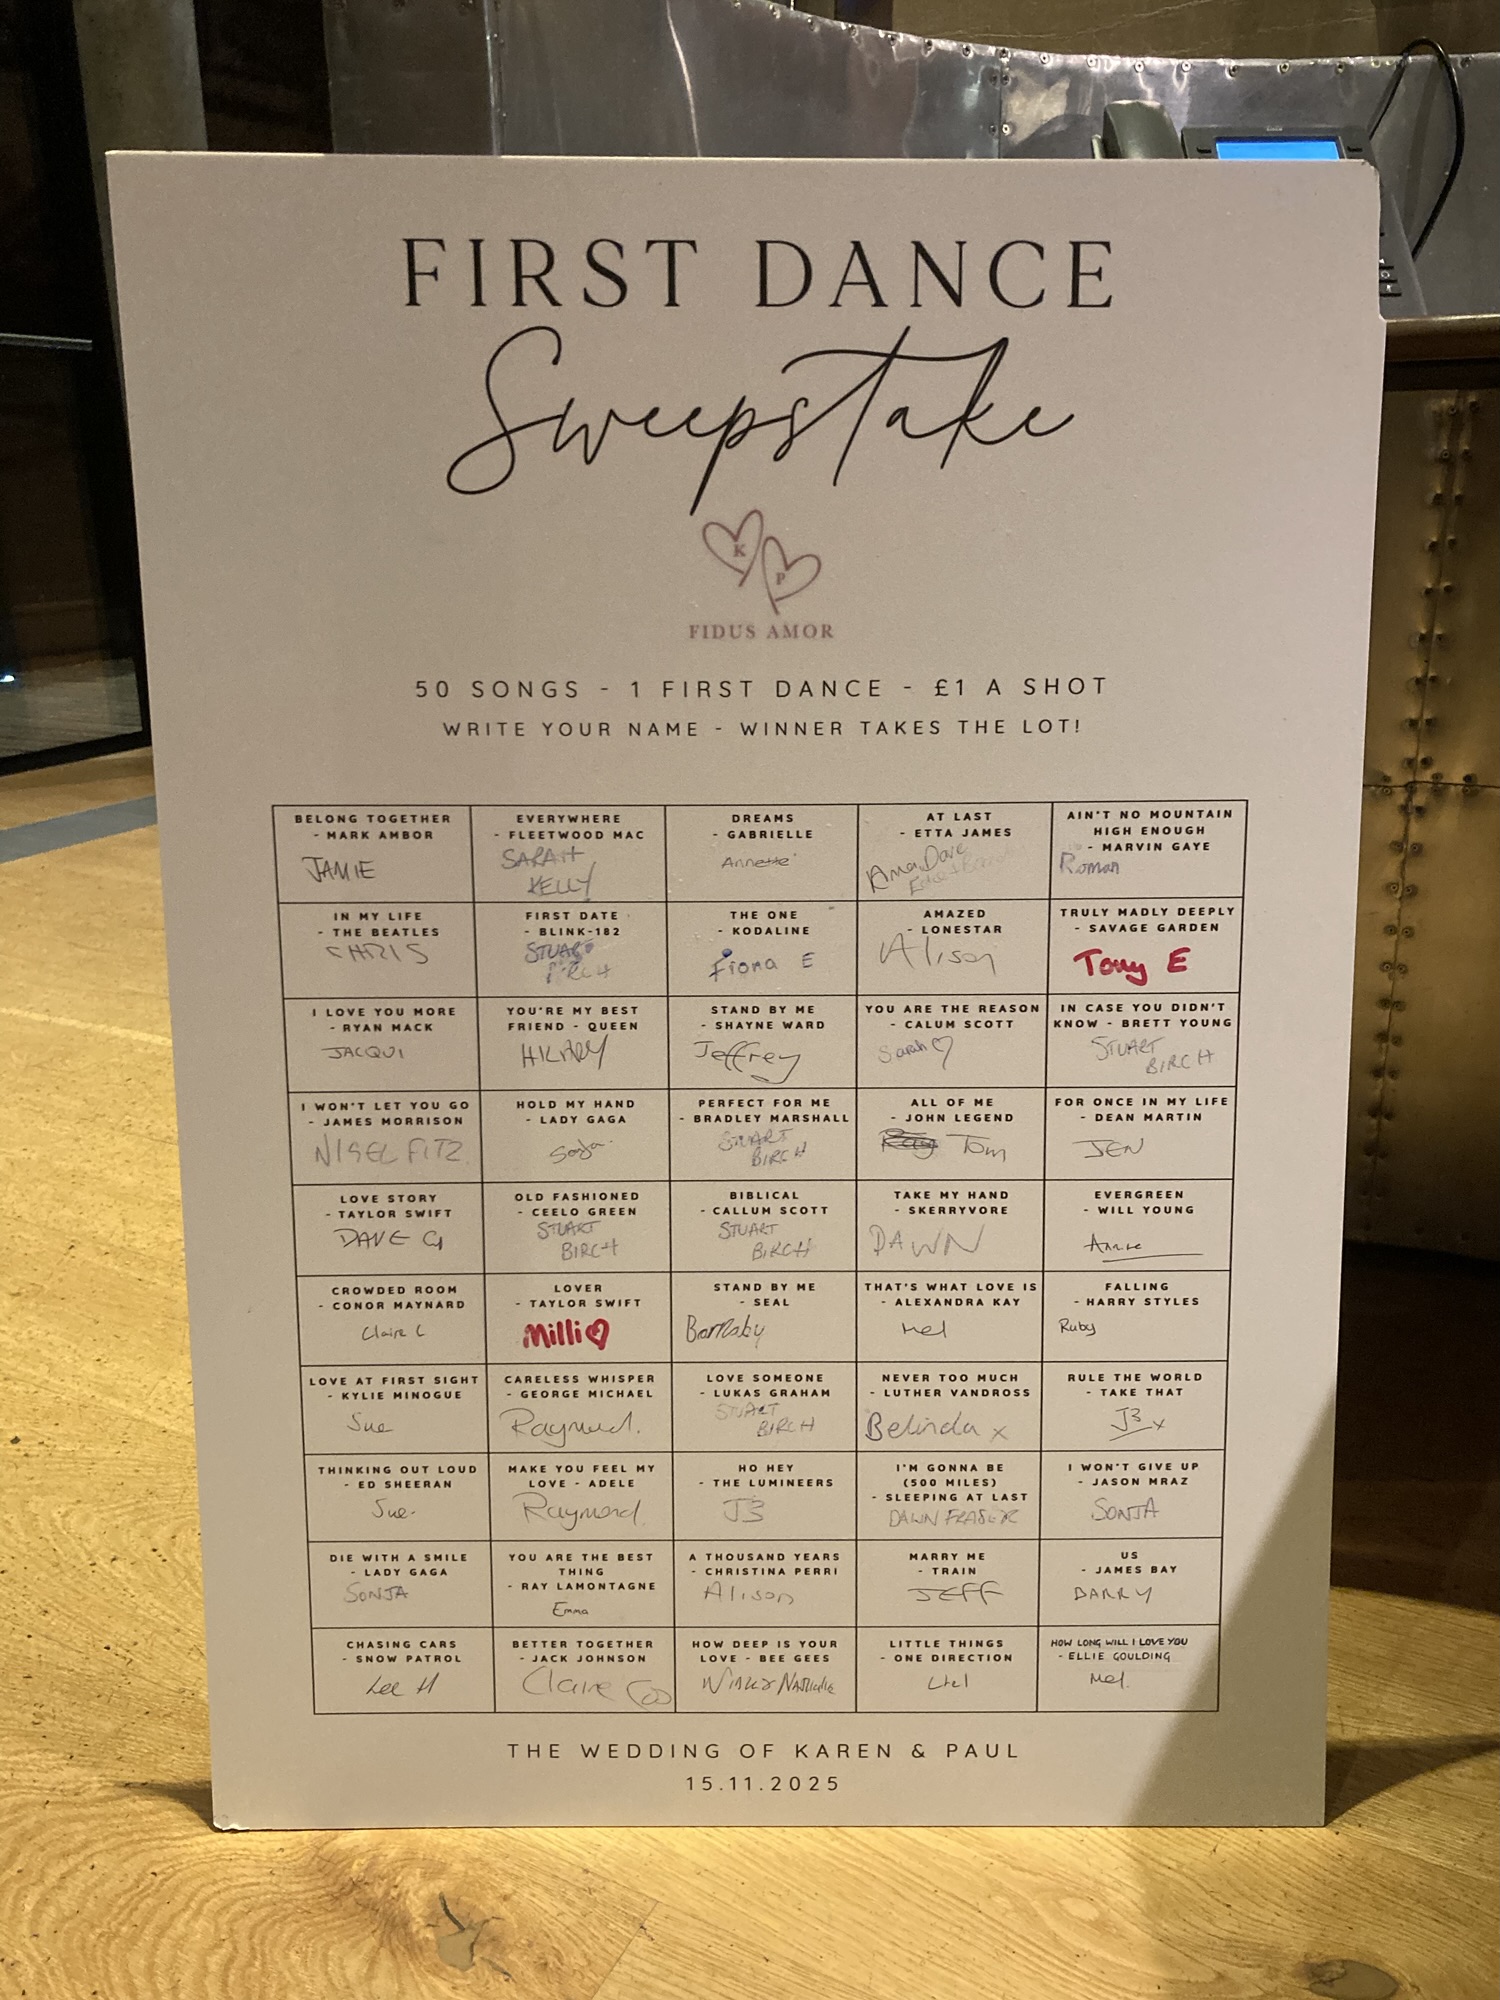 FIRST DANCE
Sweepstake
K
P
FIDUS AMOR
50 SONGS - 1 FIRST DANCE - £1 A SHOT
WRITE YOUR NAME - WINNER TAKES THE LOT!
BELONG TOGETHER
- MARK AMBOR
JAMIE
EVERYWHERE
- FLEETWOOD MAC
SARAH
KELLY
DREAMS
- GABRIELLE
Annette
AT LAST
- ETTA JAMES
Dave
AIN'T NO MOUNTAIN
HIGH ENOUGH
- MARVIN GAYE
Roman
IN MY LIFE
- THE BEATLES
CHRIS
FIRST DATE
- BLINK-182
STUART
BIRCH
THE ONE
- KODALINE
Fiona E
AMAZED
- LONESTAR
Alison
TRULY MADLY DEEPLY
- SAVAGE GARDEN
Tony E
I LOVE YOU MORE
- RYAN MACK
JACQUI
YOU'RE MY BEST
FRIEND - QUEEN
HILARY
STAND BY ME
- SHAYNE WARD
Jeffrey
YOU ARE THE REASON
- CALUM SCOTT
Sarah
IN CASE YOU DIDN'T
KNOW - BRETT YOUNG
STUART
BIRCH
I WON'T LET YOU GO
- JAMES MORRISON
NIGEL FITZ
HOLD MY HAND
- LADY GAGA
Sonja
PERFECT FOR ME
- BRADLEY MARSHALL
STUART
BIRCH
ALL OF ME
- JOHN LEGEND
Tom
FOR ONCE IN MY LIFE
- DEAN MARTIN
JEN
LOVE STORY
- TAYLOR SWIFT
DAVE G
OLD FASHIONED
- CEELO GREEN
STUART
BIRCH
BIBLICAL
- CALLUM SCOTT
STUART
BIRCH
TAKE MY HAND
- SKERRYVORE
DAWN
EVERGREEN
- WILL YOUNG
Annie
CROWDED ROOM
- CONOR MAYNARD
Claire C
LOVER
- TAYLOR SWIFT
Milli
STAND BY ME
- SEAL
Barnaby
THAT'S WHAT LOVE IS
- ALEXANDRA KAY
Mel
FALLING
- HARRY STYLES
Ruby
LOVE AT FIRST SIGHT
- KYLIE MINOGUE
Sue
CARELESS WHISPER
- GEORGE MICHAEL
Raymond.
LOVE SOMEONE
- LUKAS GRAHAM
STUART
BIRCH
NEVER TOO MUCH
- LUTHER VANDROSS
Belinda x
RULE THE WORLD
- TAKE THAT
J3 x
THINKING OUT LOUD
- ED SHEERAN
Sue.
MAKE YOU FEEL MY
LOVE - ADELE
Raymond.
HO HEY
- THE LUMINEERS
J3
I'M GONNA BE
(500 MILES)
- SLEEPING AT LAST
DAWN FRASER
I WON'T GIVE UP
- JASON MRAZ
SONJA
DIE WITH A SMILE
- LADY GAGA
SONJA
YOU ARE THE BEST
THING
- RAY LAMONTAGNE
Emma
A THOUSAND YEARS
- CHRISTINA PERRI
Alison
MARRY ME
- TRAIN
JEFF
US
- JAMES BAY
BARRY
CHASING CARS
- SNOW PATROL
Lee H
BETTER TOGETHER
- JACK JOHNSON
Claire
HOW DEEP IS YOUR
LOVE - BEE GEES
LITTLE THINGS
- ONE DIRECTION
HOW LONG WILL I LOVE YOU
- ELLIE GOULDING
Mel.
THE WEDDING OF KAREN & PAUL
15.11.2025